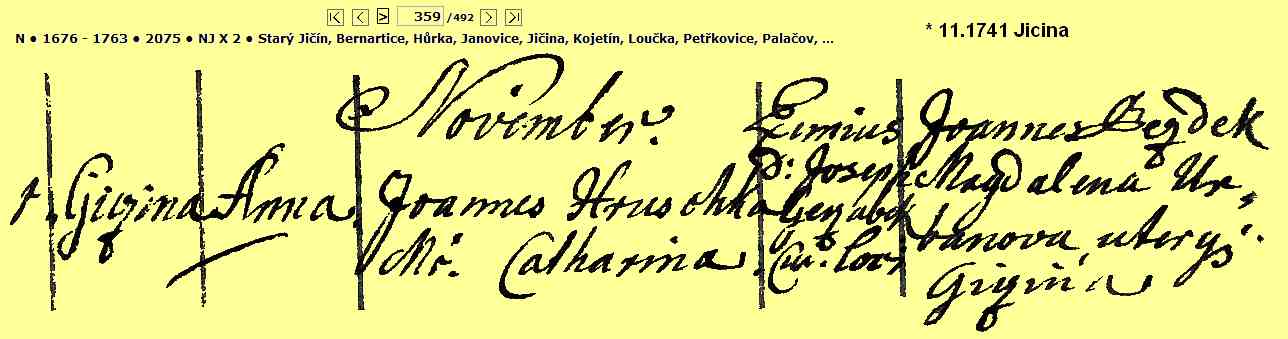 359 /492
N • 1676 - 1763 • 2075 • NJ X 2 • Starý Jičín, Bernartice, Hůrka, Janovice, Jičina, Kojetín, Loučka, Petřkovice, Palačov, ...
* 11.1741 Jicina
November.
1. Giʒina Anna
Joannes Hruschka
Mr. Catharina
D: Joseph
Cur. loci
Joannes Beʒdek
Magdalena Ur,
banova, uterqs.
Giʒina